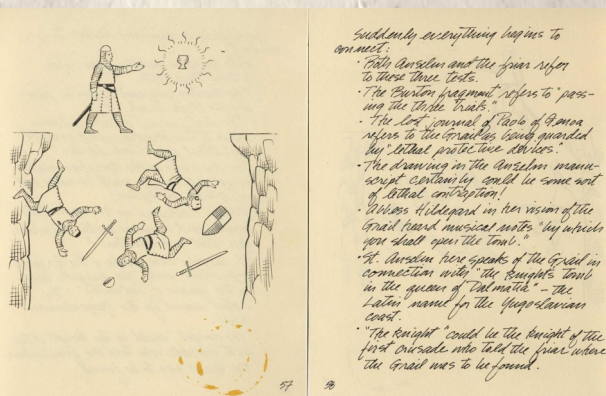 57
Suddenly everything begins to
connect:
• Both Anselm and the friar refer
to these three tests.
• The Burton fragment refers to "pass-
ing the three trials."
• The lost journal of Paolo of Genoa
refers to the Grail as being guarded
by "lethal protective devices."
• The drawing in the Anselm manu-
script certainly could be some sort
of lethal contraption!
• Abbess Hildegard in her vision of the
Grail heard musical notes "by which
you shall open the tomb."
• St. Anselm here speaks of the Grail in
connection with "the knight's tomb
in the queen of Dalmatia" – the
Latin name for the Yugoslavian
coast.
• "The knight" could be the knight of the
first crusade who told the friar where
the Grail was to be found.
58